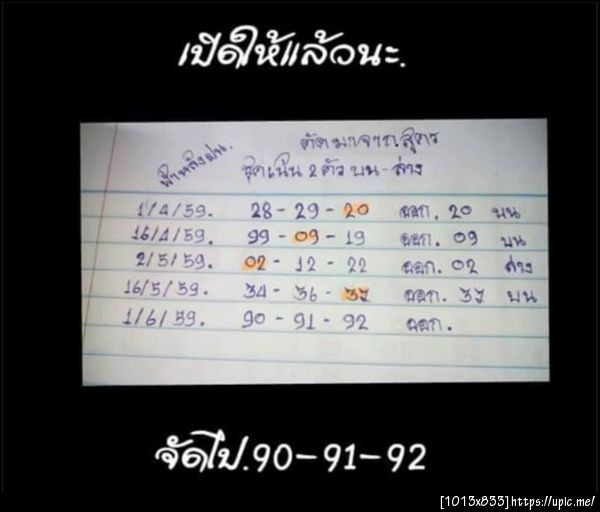 เปิดให้แล้วนะ.
ฟ้าหลังฝน.
ตัดมาจากสูตร
ชุดเน้น 2 ตัว บน - ล่าง
1/4/59. 28 - 29 - 20 ออก. 20 บน
16/4/59. 99 - 09 - 19 ออก. 09 บน
2/5/59. 02 - 12 - 22 ออก. 02 ล่าง
16/5/59. 34 - 36 - 37 ออก. 37 บน
1/6/59. 90 - 91 - 92 ออก.
จัดไป.90-91-92
[1013x833]https://upic.me/